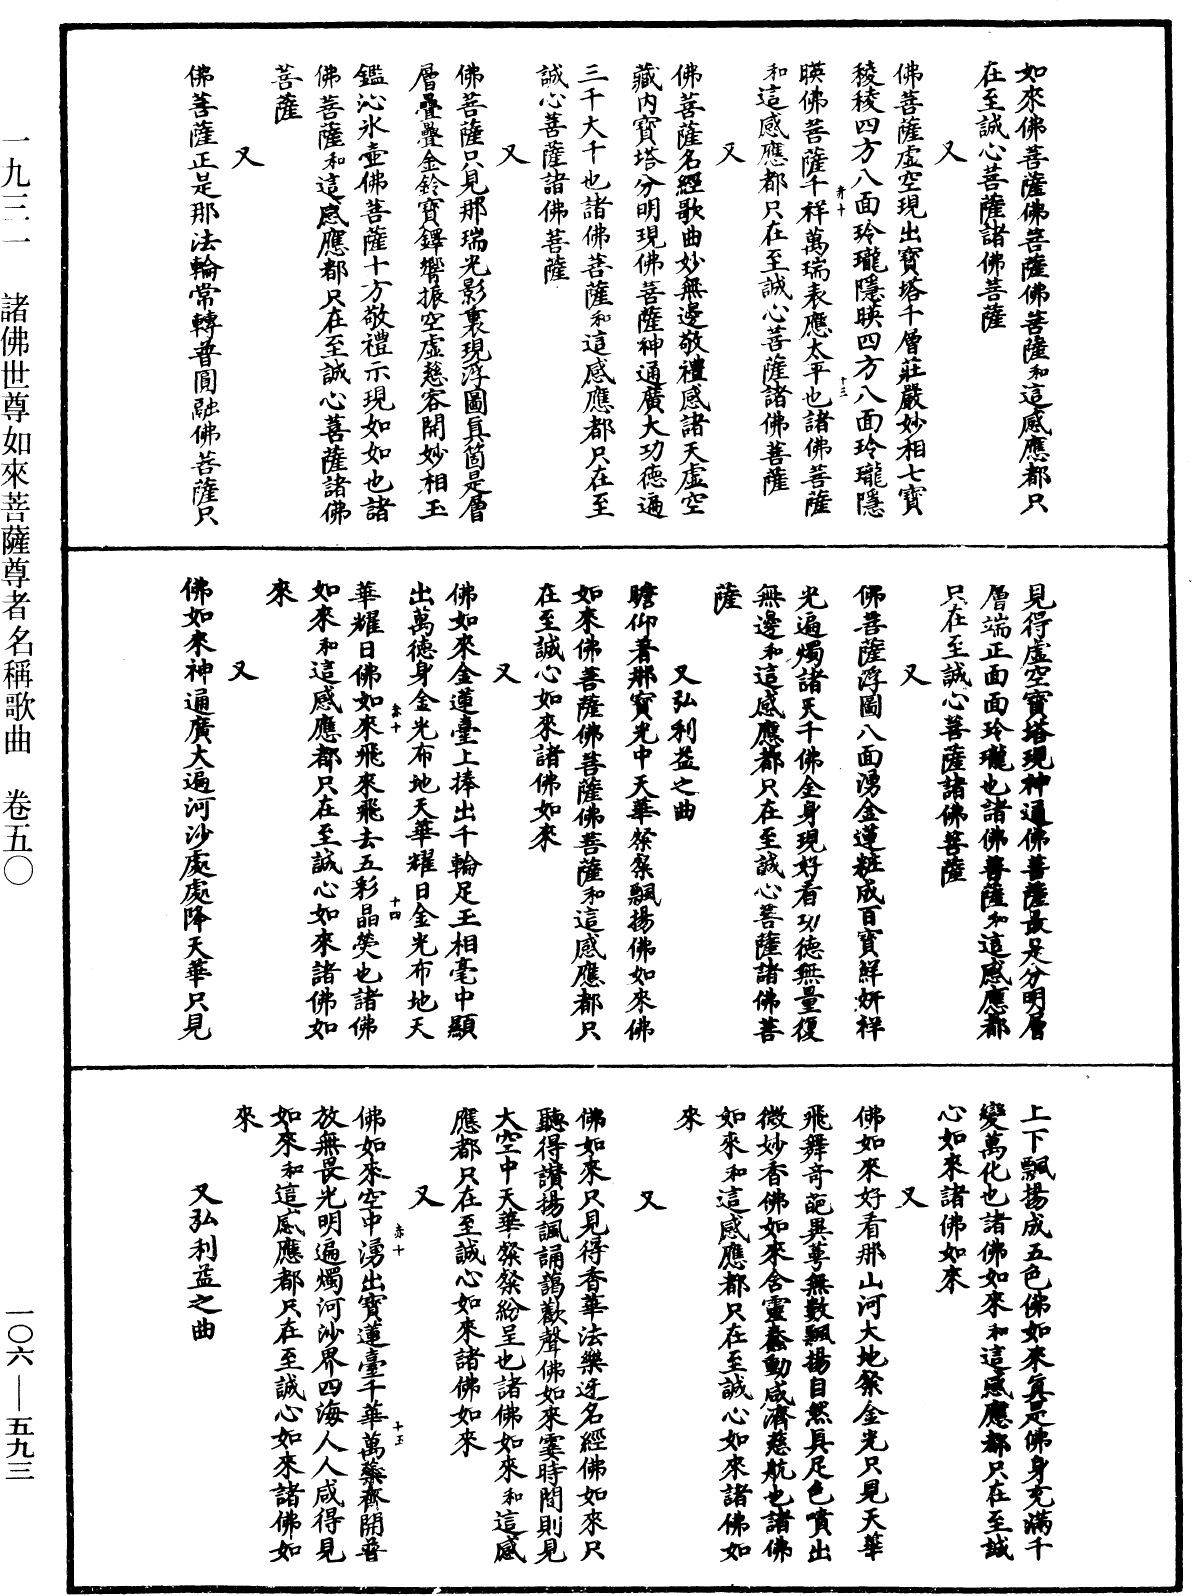 如來佛菩薩佛菩薩佛菩薩和這感應都只
在至誠心菩薩諸佛菩薩
又
佛菩薩虛空現出寶塔千層莊嚴妙相七寶
稜稜四方八面玲瓏隱暎四方八面玲瓏隱
暎佛菩薩千祥萬瑞表應太平也諸佛菩薩
和這感應都只在至誠心菩薩諸佛菩薩
又
佛菩薩名經歌曲妙無邊敬禮感諸天虛空
藏內寶塔分明現佛菩薩神通廣大功德遍
三千大千也諸佛菩薩和這感應都只在至
誠心菩薩諸佛菩薩
又
佛菩薩只見那瑞光影裏現浮圖真箇是層
層疊疊金鈴寶鐸響振空虛慈容開妙相玉
鑑沁氷壺佛菩薩十方敬禮示現如如也諸
佛菩薩和這感應都只在至誠心菩薩諸佛
菩薩
又
佛菩薩正是那法輪常轉普圓融佛菩薩只
見得虛空寶塔現神通佛菩薩最是分明層
層端正面面玲瓏也諸佛菩薩和這感應都
只在至誠心菩薩諸佛菩薩
又
佛菩薩浮圖八面湧金蓮粧成百寶鮮妍祥
光遍燭諸天千佛金身現好看功德無量復
無邊和這感應都只在至誠心菩薩諸佛菩
薩
又弘利益之曲
瞻仰着那寶光中天華粲粲飄揚佛如來佛
如來佛菩薩佛菩薩佛菩薩和這感應都只
在至誠心如來諸佛如來
又
佛如來金蓮臺上捧出千輪足玉相毫中顯
出萬德身金光布地天華耀日金光布地天
華耀日佛如來飛來飛去五彩晶熒也諸佛
如來和這感應都只在至誠心如來諸佛如
來
又
佛如來神通廣大遍河沙處處降天華只見
上下飄揚成五色佛如來真是佛身充滿千
變萬化也諸佛如來和這感應都只在至誠
心如來諸佛如來
又
佛如來好看那山河大地粲金光只見天華
飛舞奇葩異萼無數飄揚自然具足色噴出
微妙香佛如來含靈蠢動咸濟慈航也諸佛
如來和這感應都只在至誠心如來諸佛如
來
又
佛如來只見得香華法樂迓名經佛如來只
聽得讚揚諷誦藹歡聲佛如來霎時間則見
大空中天華粲粲紛呈也諸佛如來和這感
應都只在至誠心如來諸佛如來
又
佛如來空中湧出寶蓮臺千華萬藥齊開普
放無畏光明遍燭河沙界四海人人咸得見
如來和這感應都只在至誠心如來諸佛如
來
又弘利益之曲
赤十
十三
赤十
十四
赤十
十五
一九三一 諸佛世尊如來菩薩尊者名稱歌曲 卷五〇
一〇六—五九三